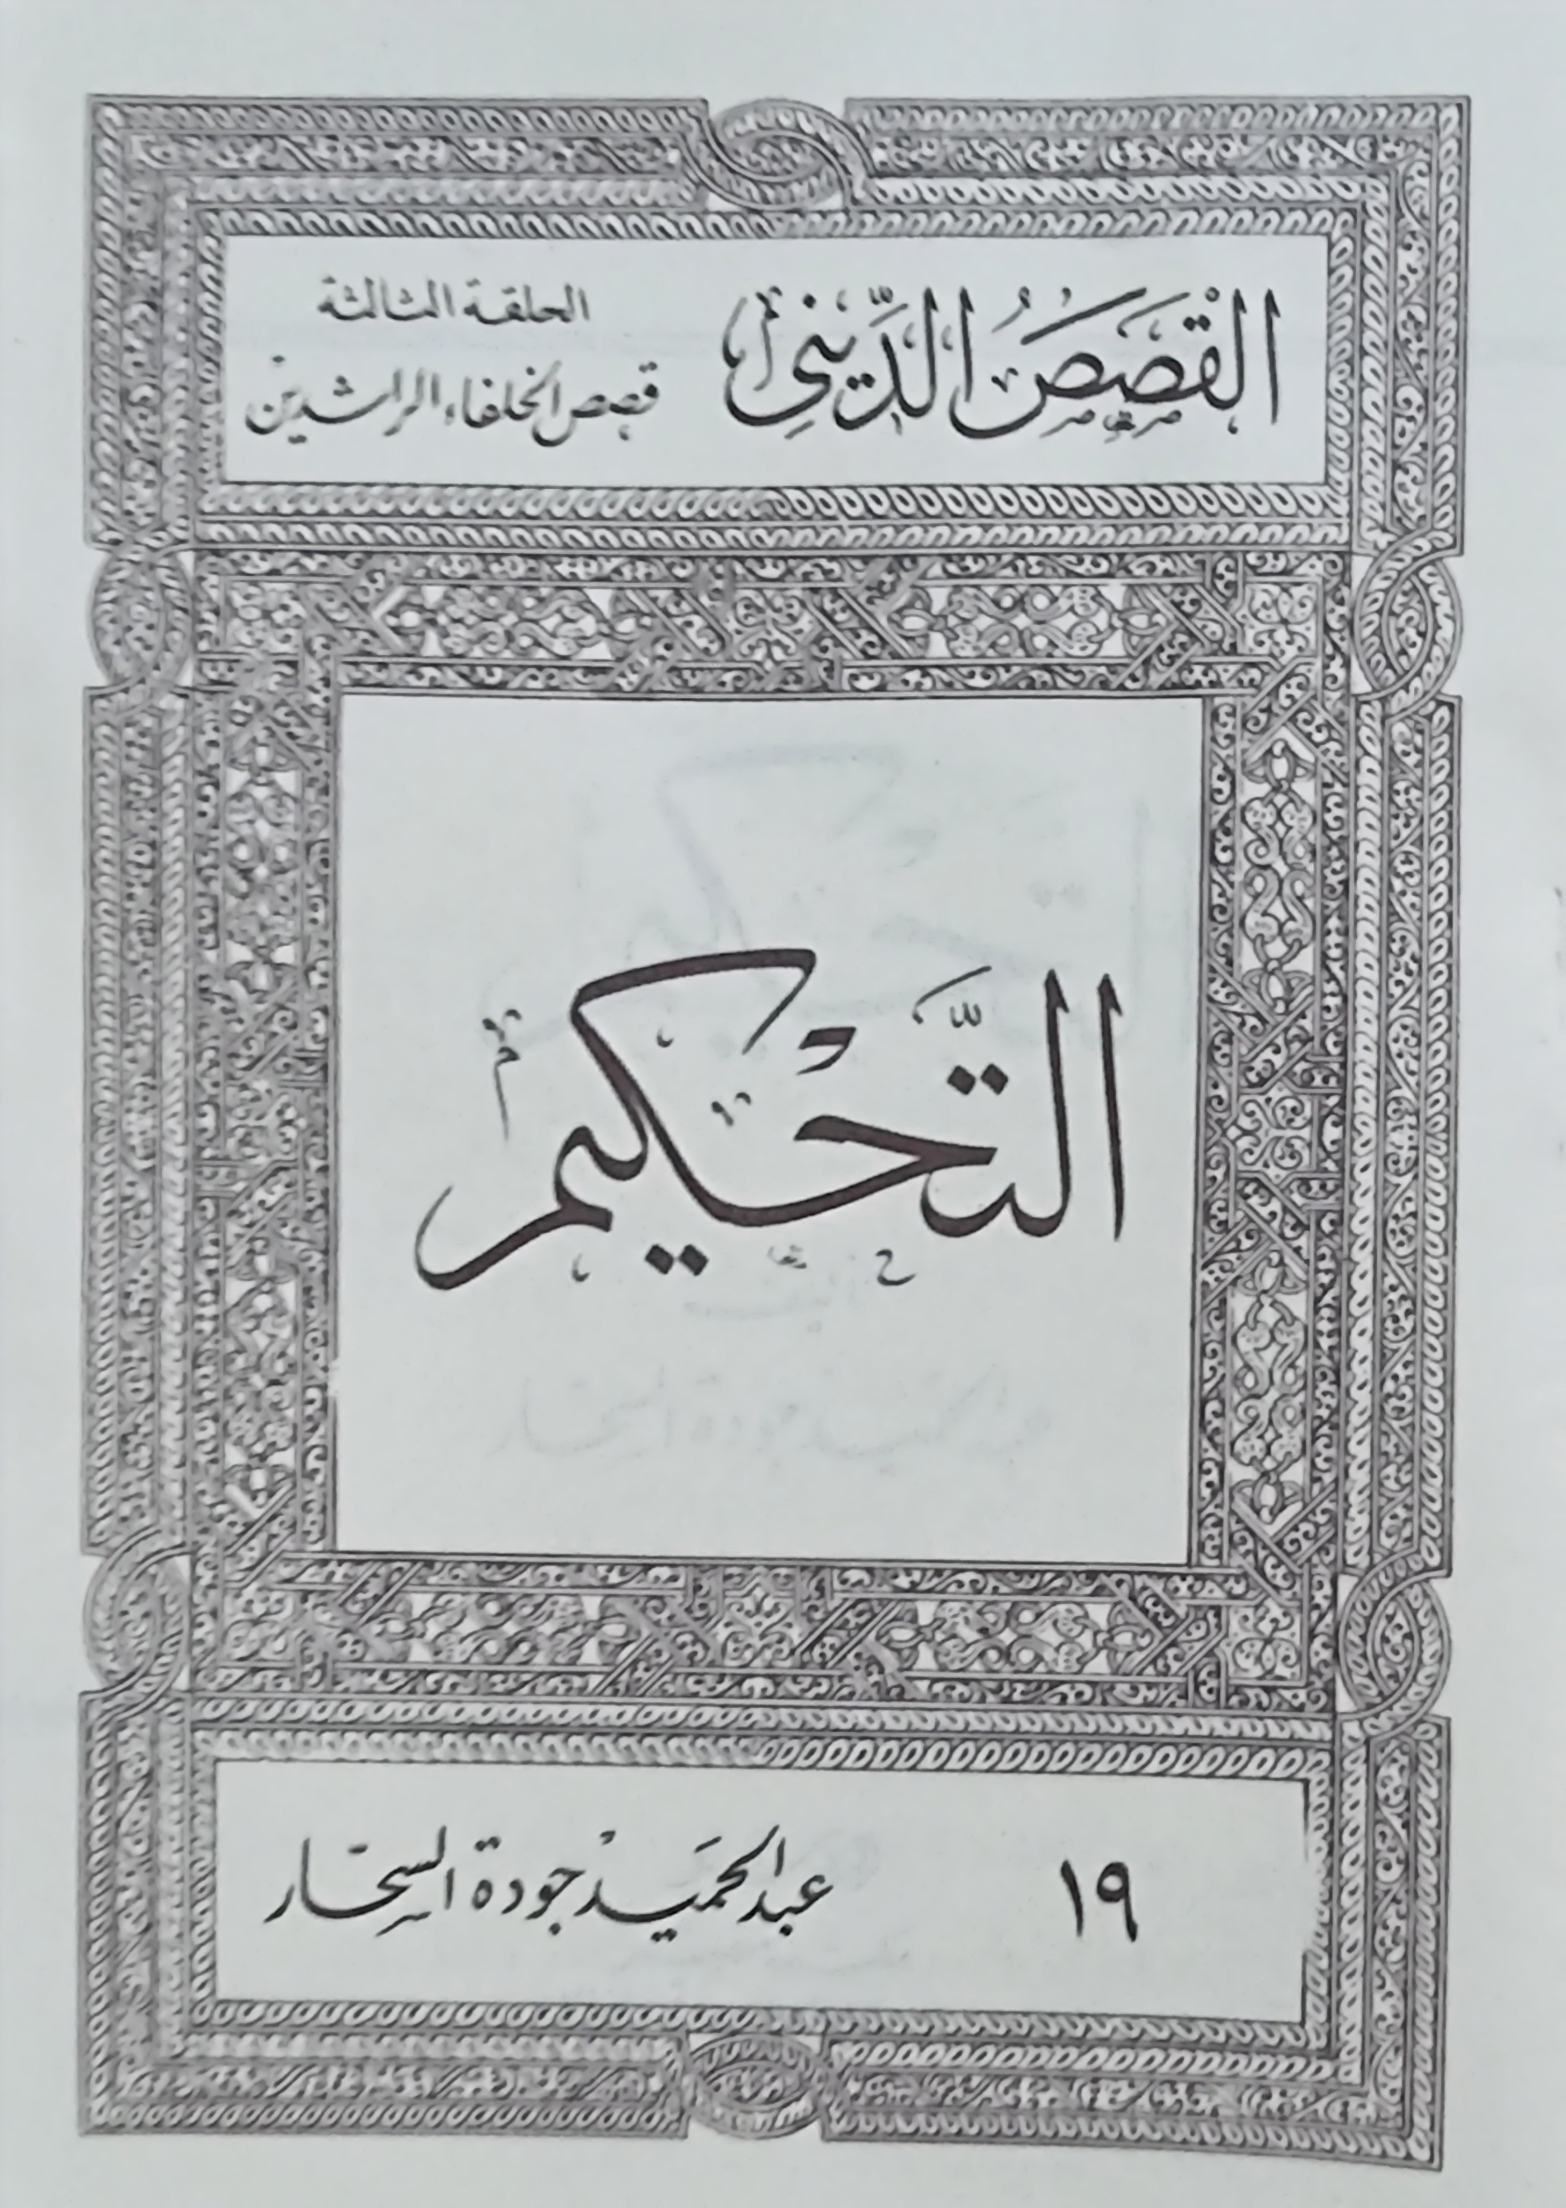 القَصَصُ الدِّينِي
الحلقة الثالثة
قصص الخلفاء الراشدين
التَّحْكيم
١٩
عبد الحَميد جودة السحّار